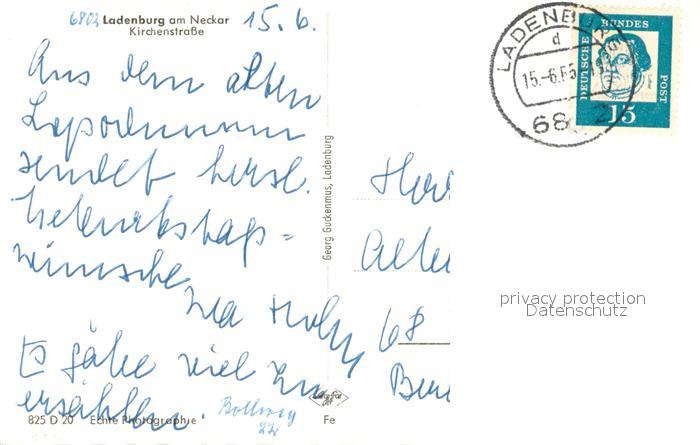 6802 Ladenburg am Neckar
Kirchenstraße
15. 6.
Aus dem alten
Lopodunum
sendet herzl.
Geburtstags-
wünsche
Es gäbe viel zu
erzählen.
825 D 20 Echte Photographie
Fe
Georg Guckenmus, Ladenburg
68
LADENBURG
d
15.-6.65
68 2
DEUTSCHE BUNDESPOST
15
privacy protection
Datenschutz